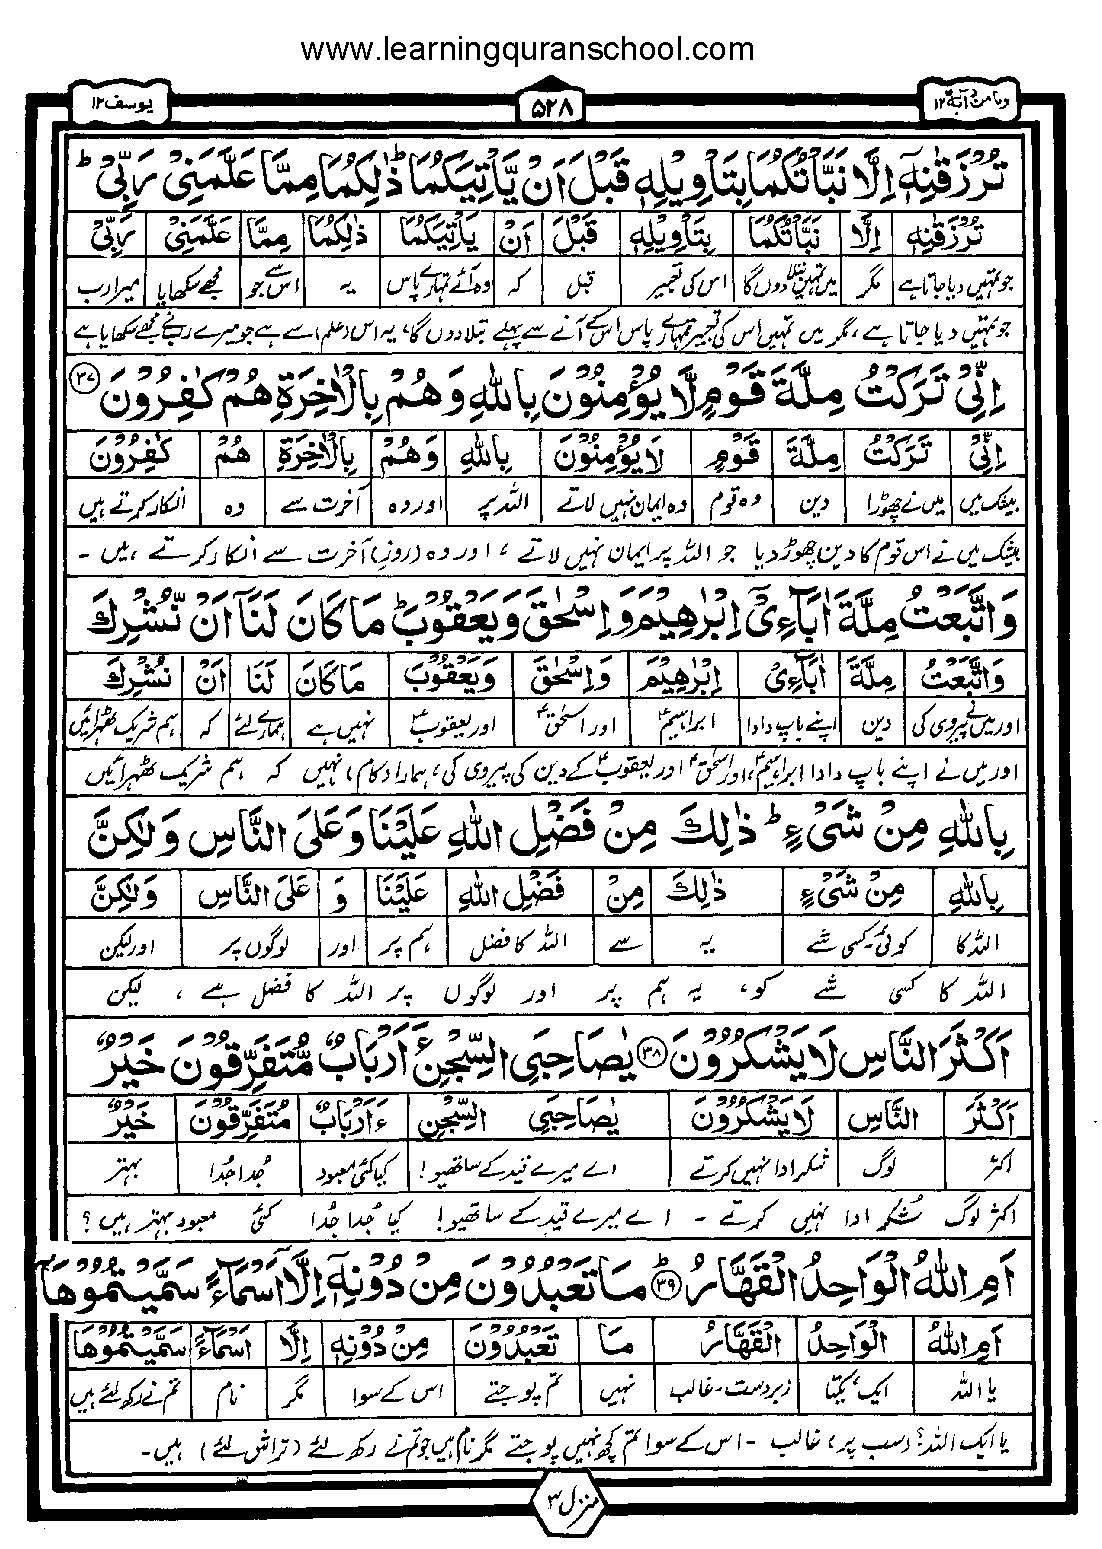 www.learningquranschool.com
وما من دآبة ۱۲
۵۲۸
یوسف ۱۲
تُرْزَقٰنِهٖۤ اِلَّا نَبَّاْتُكُمَا بِتَاْوِیْلِهٖ قَبْلَ اَنْ یَّاْتِیَكُمَاؕ ذٰلِكُمَا مِمَّا عَلَّمَنِیْ رَبِّیْؕ
تُرْزَقٰنِهٖۤ اِلَّا نَبَّاْتُكُمَا بِتَاْوِیْلِهٖ قَبْلَ اَنْ یَّاْتِیَكُمَا ذٰلِكُمَا مِمَّا عَلَّمَنِیْ رَبِّیْ
جو تمہیں دیا جاتا ہے مگر میں تمہیں بتلا دوں گا اس کی تعبیر قبل کہ وہ آئے تمہارے پاس یہ اس سے جو مجھے سکھایا میرا رب
جو تمہیں دیا جاتا ہے، مگر میں تمہیں اس کی تعبیر تمہارے پاس اس کے آنے سے پہلے بتلا دوں گا، یہ اس (علم) سے ہے جو میرے رب نے مجھے سکھایا ہے
اِنِّیْ تَرَكْتُ مِلَّةَ قَوْمٍ لَّا یُؤْمِنُوْنَ بِاللّٰهِ وَهُمْ بِالْاٰخِرَةِ هُمْ كٰفِرُوْنَ ۳۷
اِنِّیْ تَرَكْتُ مِلَّةَ قَوْمٍ لَا یُؤْمِنُوْنَ بِاللّٰهِ وَهُمْ بِالْاٰخِرَةِ هُمْ كٰفِرُوْنَ
بیشک میں میں نے چھوڑا دین وہ قوم وہ ایمان نہیں لاتے اللہ پر اور وہ آخرت سے وہ انکار کرتے ہیں
بیشک میں نے اس قوم کا دین چھوڑ دیا جو اللہ پر ایمان نہیں لاتے، اور وہ (روزِ) آخرت سے انکار کرتے ہیں -
وَاتَّبَعْتُ مِلَّةَ اٰبَآءِیْۤ اِبْرٰهِیْمَ وَاِسْحٰقَ وَیَعْقُوْبَؕ مَا كَانَ لَنَاۤ اَنْ نُّشْرِكَ
وَاتَّبَعْتُ مِلَّةَ اٰبَآءِیْ اِبْرٰهِیْمَ وَاِسْحٰقَ وَیَعْقُوْبَ مَا كَانَ لَنَا اَنْ نُشْرِكَ
اور میں نے پیروی کی دین اپنے باپ دادا ابراہیمؑ اور اسحٰقؑ اور یعقوبؑ نہیں ہے ہمارے لئے کہ ہم شریک ٹھہرائیں
اور میں نے اپنے باپ دادا ابراہیمؑ، اور اسحٰقؑ اور یعقوبؑ کے دین کی پیروی کی، ہمارا (کام) نہیں کہ ہم شریک ٹھہرائیں
بِاللّٰهِ مِنْ شَیْءٍؕ ذٰلِكَ مِنْ فَضْلِ اللّٰهِ عَلَیْنَا وَعَلَی النَّاسِ وَلٰكِنَّ
بِاللّٰهِ مِنْ شَیْءٍ ذٰلِكَ مِنْ فَضْلِ اللّٰهِ عَلَیْنَا وَ عَلَی النَّاسِ وَلٰكِنَّ
اللہ کا کوئی۔کسی شے یہ سے اللہ کا فضل ہم پر اور لوگوں پر اور لیکن
اللہ کا کسی شے کو، یہ ہم پر اور لوگوں پر اللہ کا فضل ہے، لیکن
اَكْثَرَ النَّاسِ لَا یَشْكُرُوْنَ ۳۸ یٰصَاحِبَیِ السِّجْنِ ءَاَرْبَابٌ مُّتَفَرِّقُوْنَ خَیْرٌ
اَكْثَرَ النَّاسِ لَا یَشْكُرُوْنَ یٰصَاحِبَیِ السِّجْنِ ءَاَرْبَابٌ مُتَفَرِّقُوْنَ خَیْرٌ
اکثر لوگ شکر ادا نہیں کرتے اے میرے قید کے ساتھیو! کیا کئی معبود جُدا جُدا بہتر
اکثر لوگ شکر ادا نہیں کرتے - اے میرے قید کے ساتھیو! کیا جُدا جُدا کئی معبود بہتر ہیں؟
اَمِ اللّٰهُ الْوَاحِدُ الْقَهَّارُؕ ۳۹ مَا تَعْبُدُوْنَ مِنْ دُوْنِهٖۤ اِلَّاۤ اَسْمَآءً سَمَّیْتُمُوْهَاۤ
اَمِ اللّٰهُ الْوَاحِدُ الْقَهَّارُ مَا تَعْبُدُوْنَ مِنْ دُوْنِهٖ اِلَّا اَسْمَآءً سَمَّیْتُمُوْهَا
یا اللہ ایک، یکتا زبردست۔غالب نہیں تم پوجتے اس کے سوا مگر نام تم نے رکھ لئے ہیں
یا ایک اللہ؟ (سب پر) غالب - اس کے سوا تم کچھ نہیں پوجتے مگر نام ہیں جو تم نے رکھ لئے (تراش لئے) ہیں-
منزل ۳